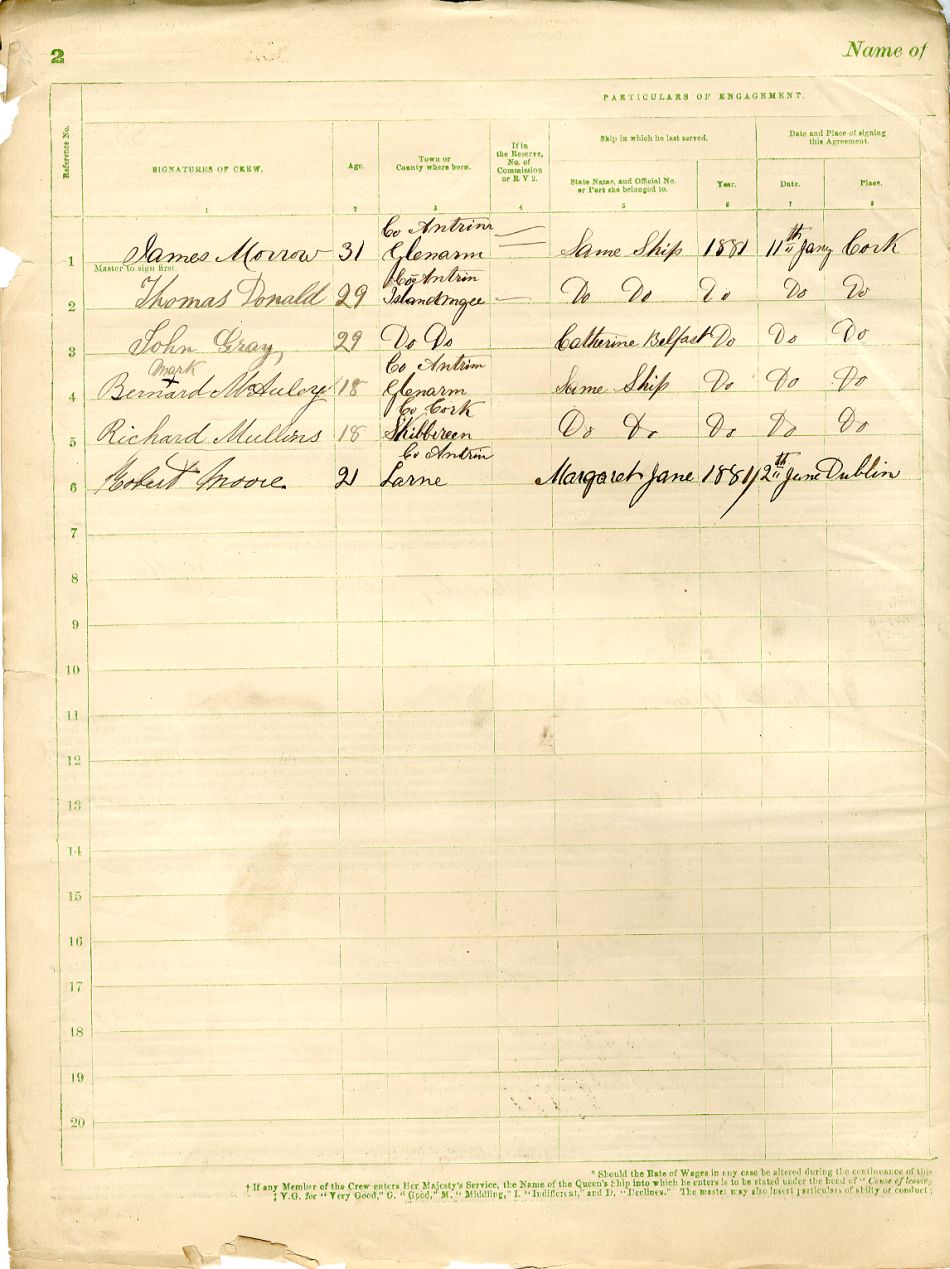 2
Name of
PARTICULARS OF ENGAGEMENT.
Reference No.
SIGNATURES OF CREW.
Age.
Town or
County where born.
If in
the Reserve,
No. of
Commission
or R V 2.
Ship in which he last served.
State Name, and Official No.
or Port she belonged to.
Year.
Date and Place of signing
this Agreement.
Date.
Place.
1 2 3 4 5 6 7 8
Co Antrim
1 James Morrow 31 Glenarm Same Ship 1881 11th Jany Cork
Master to sign first.
Co Antrim
2 Thomas Donald 29 Islandmgee Do Do Do Do Do
3 John Gray 29 Do Do Catherine Belfast Do Do Do
mark Co Antrim
4 Bernard X McAuley 18 Glenarm Same Ship Do Do Do
Co Cork
5 Richard Mullins 18 Skibbireen Do Do Do Do Do
Co Antrim
6 Robert Moore 21 Larne Margaret Jane 1881 12th June Dublin
7
8
9
10
11
12
13
14
15
16
17
18
19
20
* Should the Rate of Wages in any case be altered during the continuance of this
† If any Member of the Crew enters Her Majesty's Service, the Name of the Queen's Ship into which he enters is to be stated under the head of "Cause of leaving
‡ V.G. for "Very Good," G. "Good," M. "Middling," I. "Indifferent," and D. "Declines." The master may also insert particulars of ability or conduct;